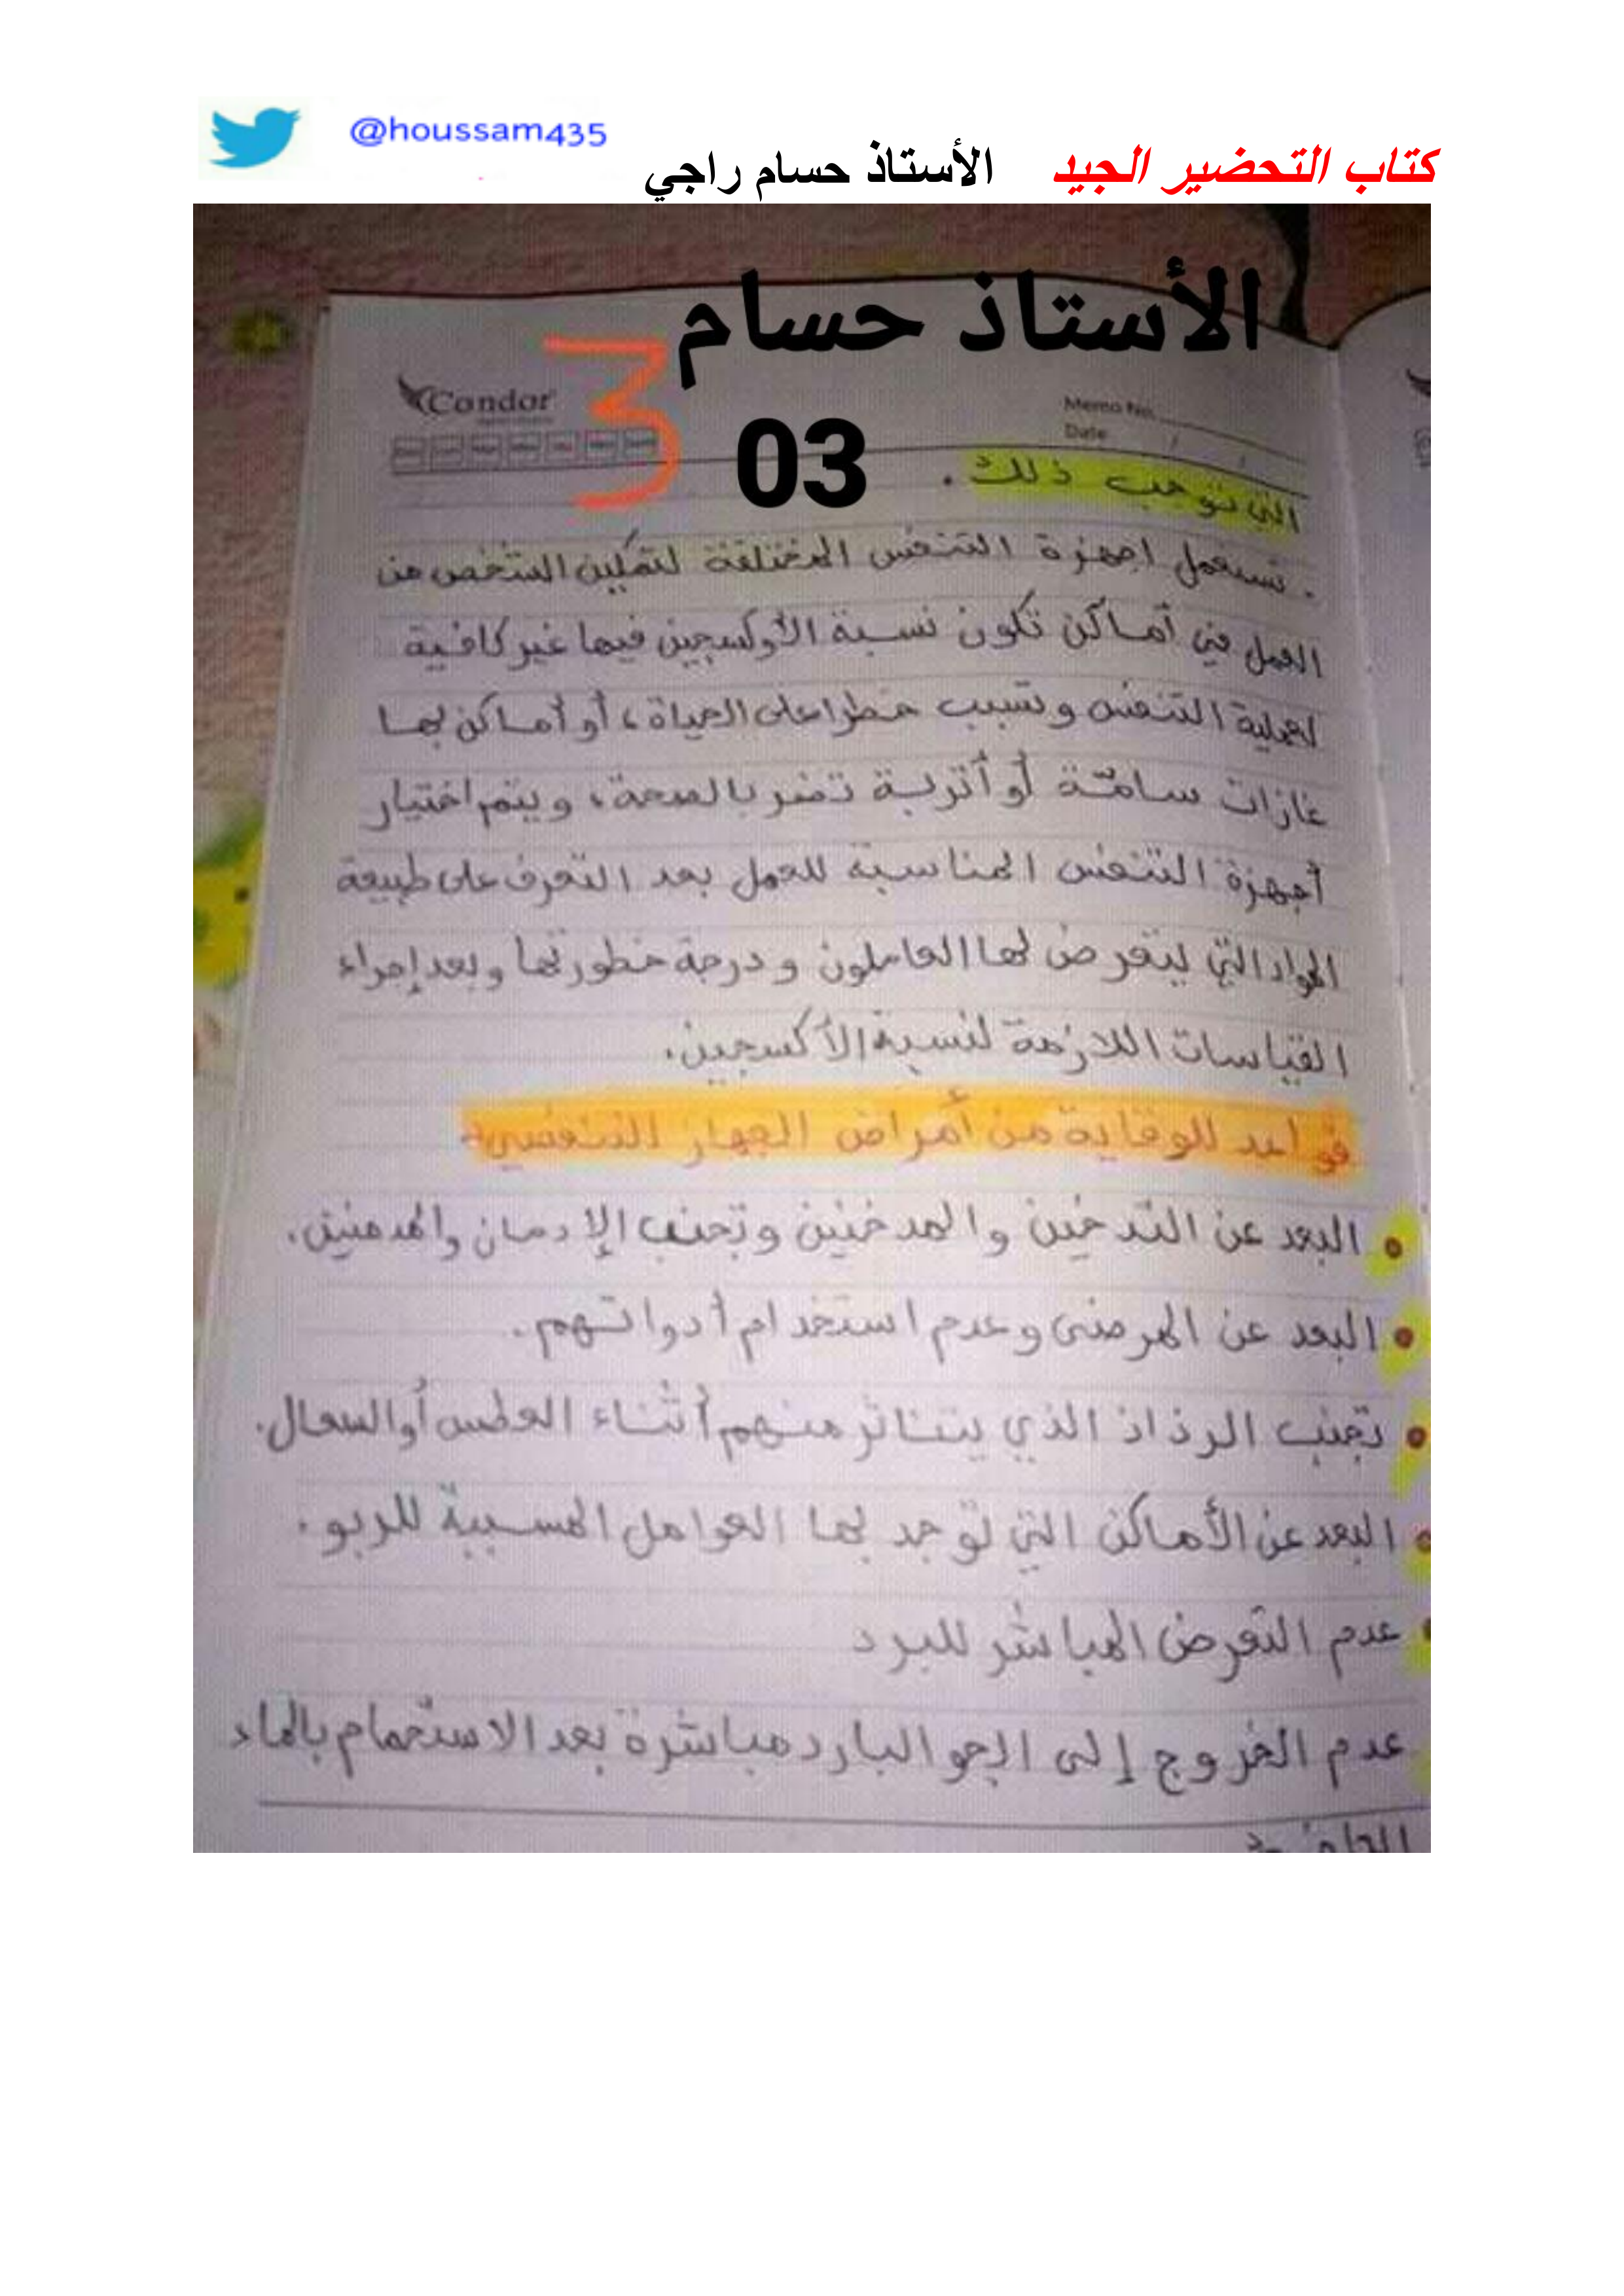 @houssam435
كتاب التحضير الجيد الأستاذ حسام راجي
الأستاذ حسام
3
03
Condor
Memo No.
Date / /
التي توجب ذلك.
. تستعمل اجهزة التنفس المختلفة لتمكين الشخص من
العمل في أماكن تكون نسبة الأوكسجين فيها غير كافية
لعملية التنفس وتسبب خطرا على الحياة، أو أماكن بها
غازات سامّة أو أتربة تضر بالصحة، ويتم اختيار
أجهزة التنفس المناسبة للعمل بعد التعرف على طبيعة
المواد التي يتعرض لها العاملون ودرجة خطورتها وبعد إجراء
القياسات اللازمة لنسبة الأكسجين.
قواعد للوقاية من أمراض الجهاز التنفسي:
• البعد عن التدخين والمدخنين وتجنب الإدمان والمدمنين.
• البعد عن المرضى وعدم استخدام أدواتهم.
• تجنب الرذاذ الذي يتناثر منهم أثناء العطس أو السعال.
• البعد عن الأماكن التي توجد بها العوامل المسببة للربو.
• عدم التعرض المباشر للبرد
عدم الخروج إلى الجو البارد مباشرة بعد الاستحمام بالماء